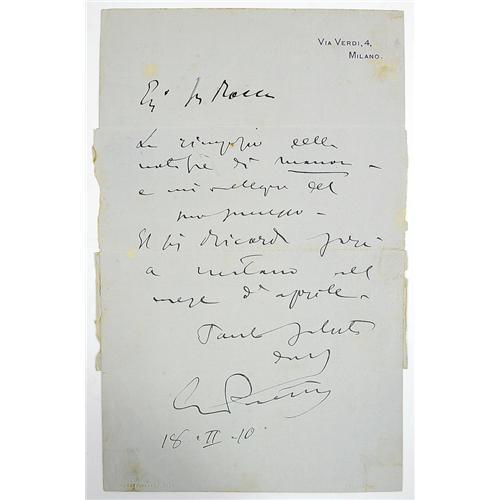 VIA VERDI, 4,
MILANO.
La ringrazio delle
notizie di Manon -
e mi rallegro del
suo successo -
Il Sig Ricordi sarà
a Milano nel
mese di aprile -
Tanti saluti
dal
G Puccini
18 · II · 10